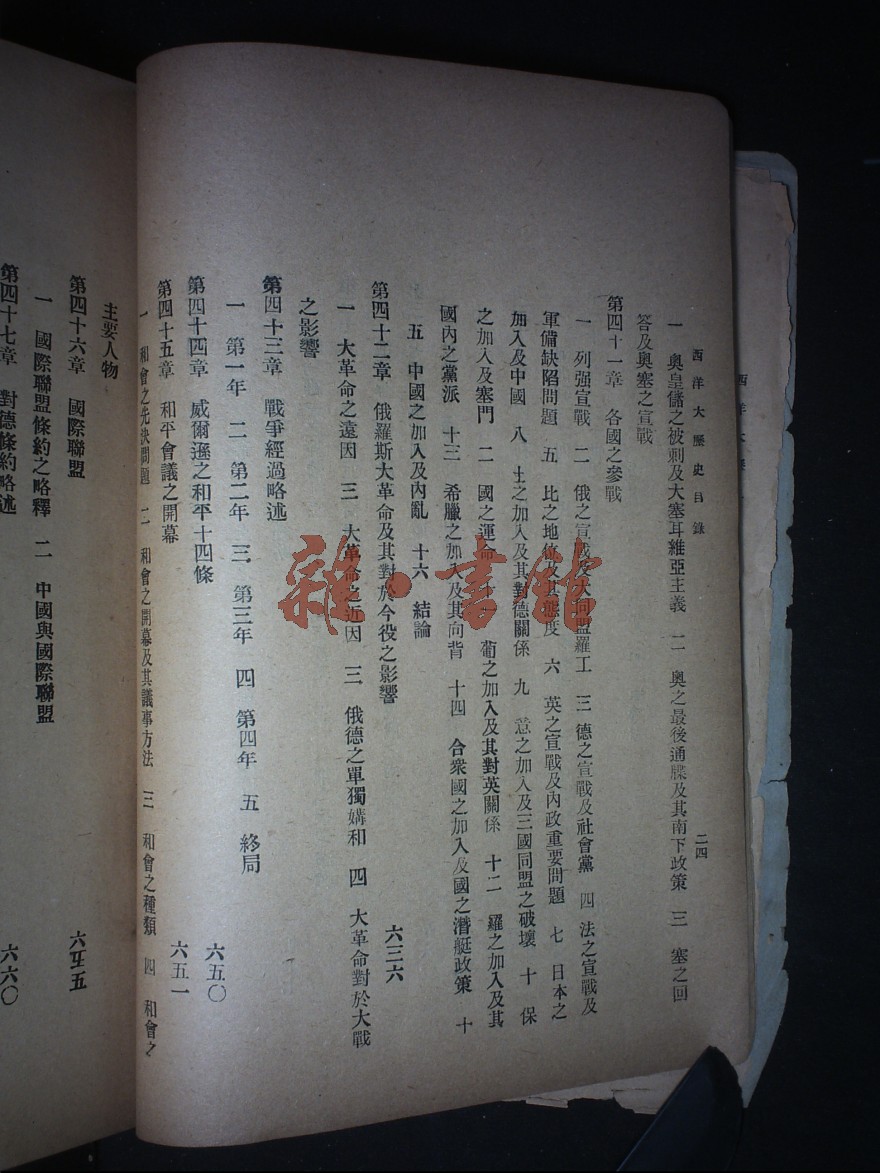 西洋大歷史目錄 二四
一 奧皇儲之被刺及大塞耳維亞主義 二 奧之最後通牒及其南下政策 三 塞之回
答及奧塞之宣戰
第四十一章 各國之參戰
一 列强宣戰 二 俄之宣戰及大同盟羅工 三 德之宣戰及社會黨 四 法之宣戰及
軍備缺陷問題 五 比之地位及其態度 六 英之宣戰及內政重要問題 七 日本之
加入及中國 八 土之加入及其對德關係 九 意之加入及三國同盟之破壞 十 保
之加入及塞門 二 國之運命 十一 葡之加入及其對英關係 十二 羅之加入及其
國內之黨派 十三 希臘之加入及其向背 十四 合衆國之加入及國之潛艇政策 十
五 中國之加入及內亂 十六 結論
第四十二章 俄羅斯大革命及其對於今役之影響 六三六
一 大革命之遠因 二 大革命之近因 三 俄德之單獨媾和 四 大革命對於大戰
之影響
第四十三章 戰爭經過略述
一 第一年 二 第二年 三 第三年 四 第四年 五 終局
第四十四章 威爾遜之和平十四條 六五〇
第四十五章 和平會議之開幕 六五一
一 和會之先決問題 二 和會之開幕及其議事方法 三 和會之種類 四 和會之
主要人物
第四十六章 國際聯盟 六五五
一 國際聯盟條約之略釋 二 中國與國際聯盟
第四十七章 對德條約略述 六六〇
雜·書館